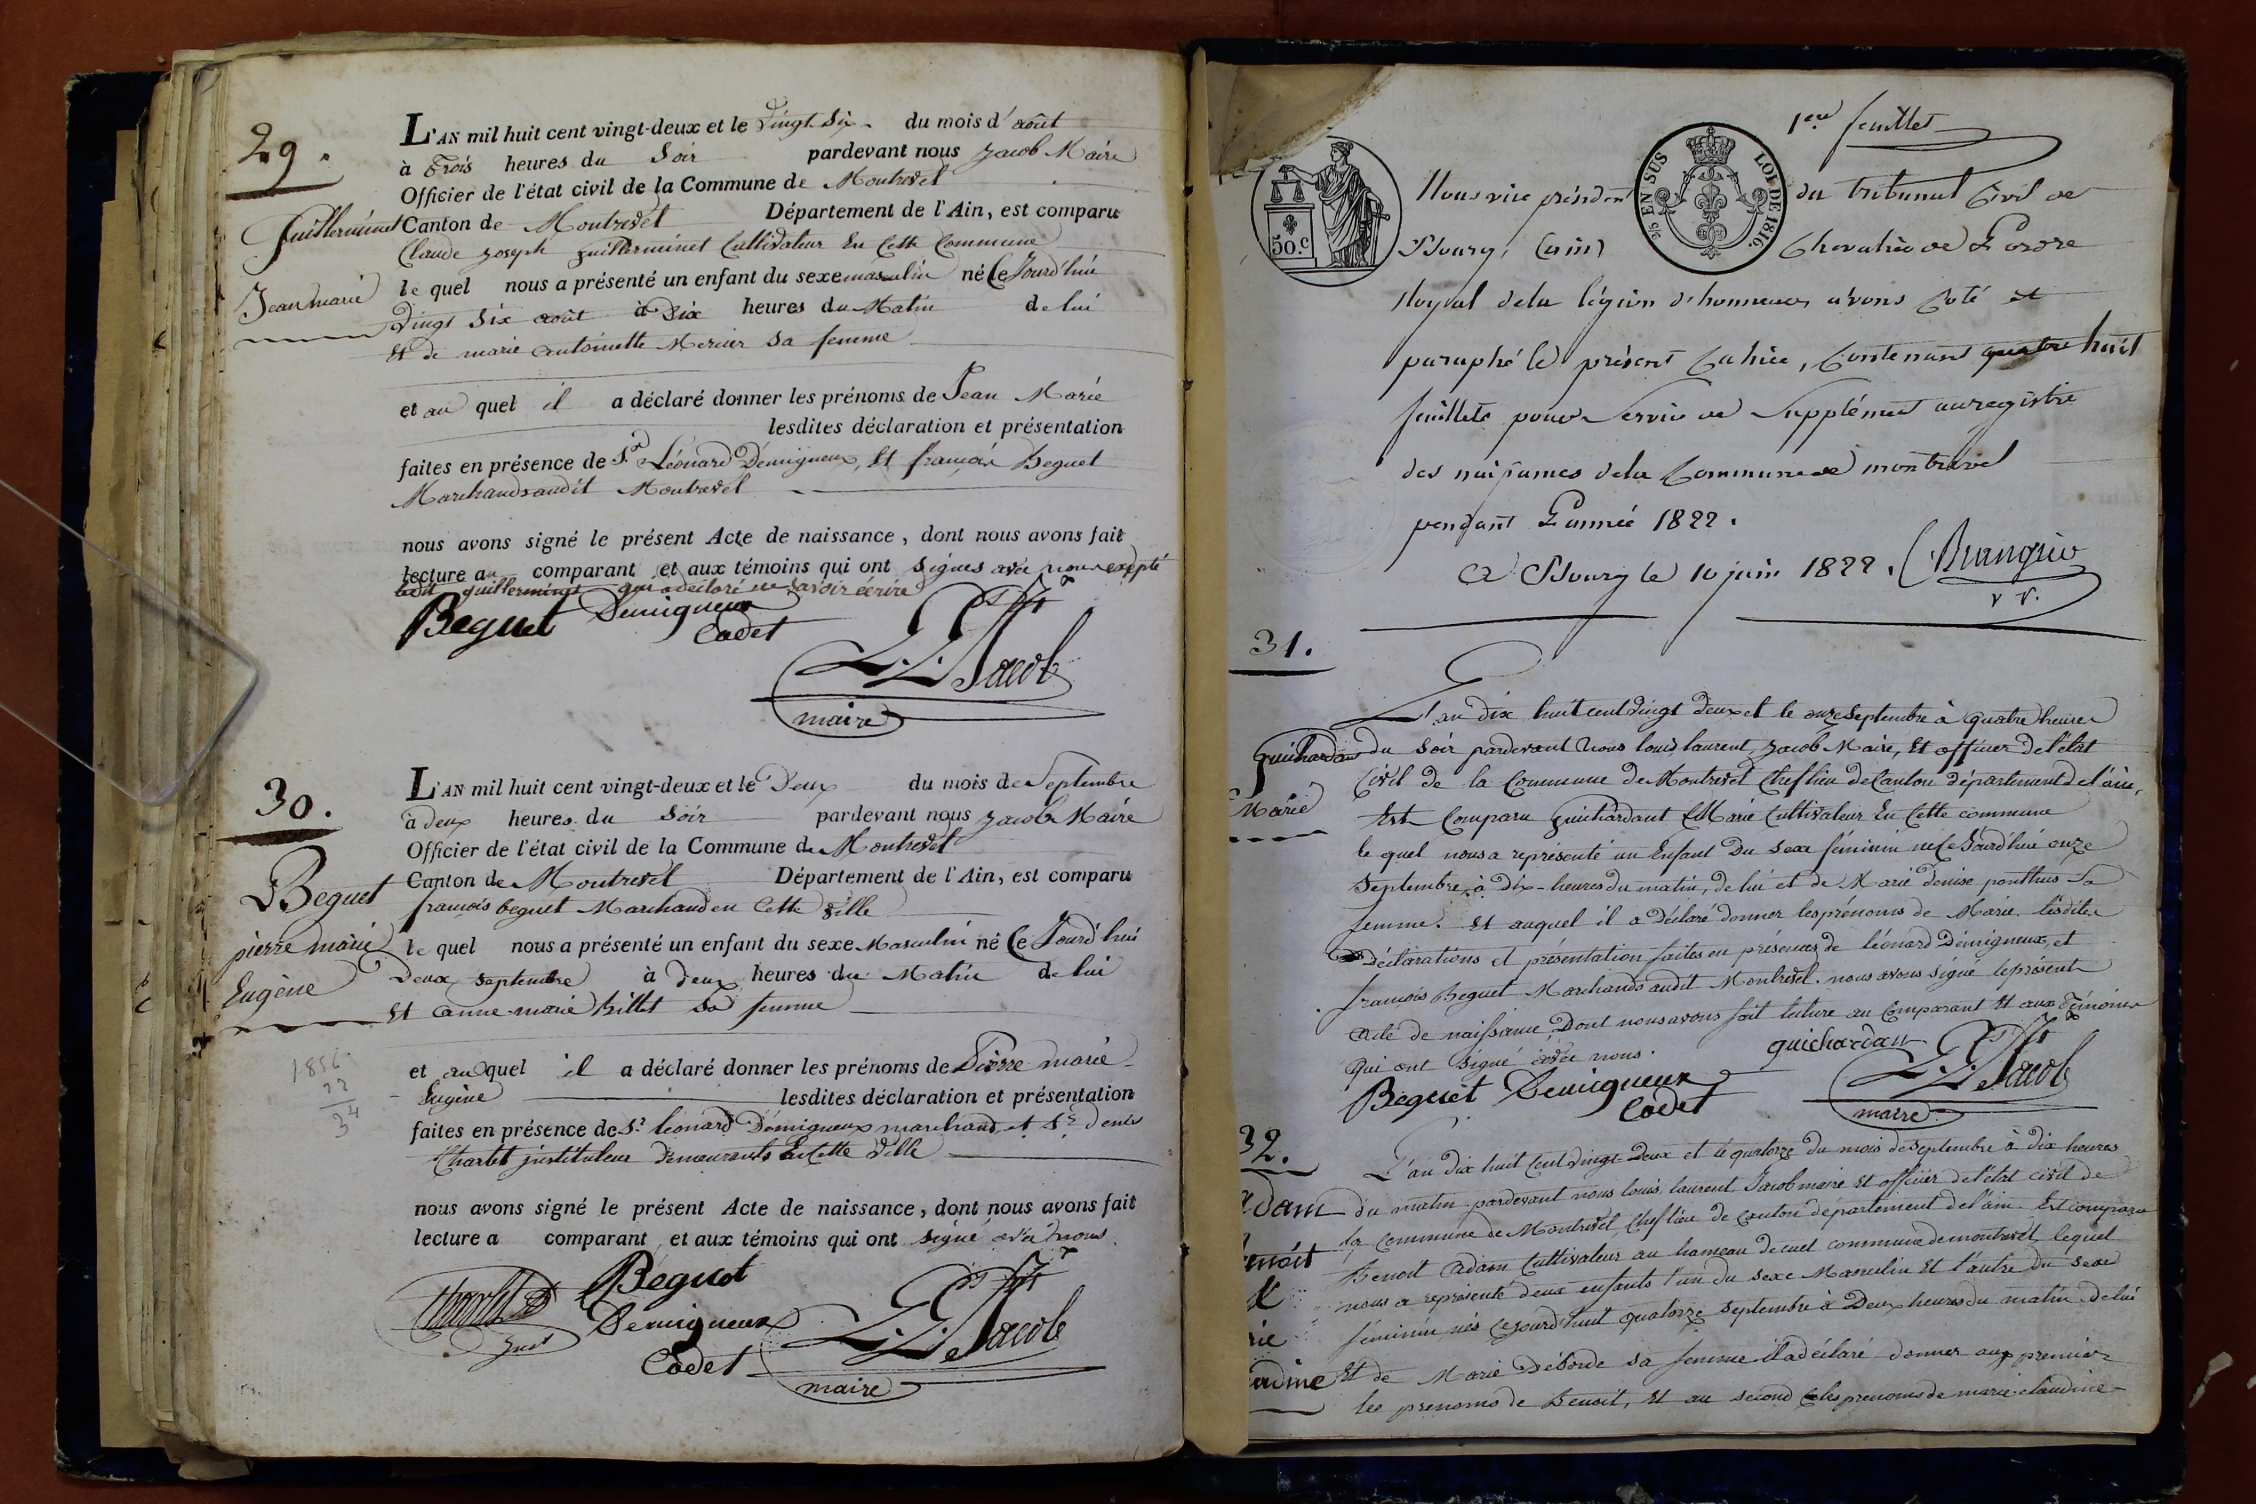 29.
Guillerminet
Jean marie
L'AN mil huit cent vingt-deux et le vingt Six du mois d'août
à Trois heures du Soir pardevant nous Jacob Maire
Officier de l'état civil de la Commune de Montrevel
Canton de Montrevel Département de l'Ain, est comparu
Claude Joseph guillerminet Cultivateur En Cette Commune
le quel nous a présenté un enfant du sexe masculin né Ce Jourd'hui
Vingt Six août à Dix heures du Matin de lui
Et de marie antoinette Mercier Sa femme
et au quel il a déclaré donner les prénoms de Jean Marie
lesdites déclaration et présentation
faites en présence de Sr Léonard Démigneux, Et françois Beguet
Marchands audit Montrevel
nous avons signé le présent Acte de naissance, dont nous avons fait
lecture au comparant et aux témoins qui ont signés avec nous excepté
ledit guillerminet qui a déclaré ne savoir écrire
Beguet Demigneux
Cadet
L. L. Jacob
maire
30.
Beguet
pierre marie
Eugène
1856
22
34
L'AN mil huit cent vingt-deux et le Deux du mois de Septembre
à deux heures du Soir pardevant nous Jacob Maire
Officier de l'état civil de la Commune de Montrevel
Canton de Montrevel Département de l'Ain, est comparu
françois beguet Marchand en Cette Ville
le quel nous a présenté un enfant du sexe Masculin né Ce Jourd'hui
Deux septembre à deux heures du Matin de lui
Et anne marie Billet Sa femme
et au quel il a déclaré donner les prénoms de Pierre marie
Eugène lesdites déclaration et présentation
faites en présence de Sr léonard Démigneux marchand et Sr denis
Charlet instituteur Demeurants En Cette Ville
nous avons signé le présent Acte de naissance, dont nous avons fait
lecture a comparant et aux témoins qui ont signé avec nous.
Beguet
Demigneux
Cadet
L. L. Jacob
maire
1er feuillet
50.c
5/c EN SUS
LOI DE 1816.
Nous vice président du tribunal Civil de
Bourg, (ain) Chevalier de L'ordre
Royal de la légion d'honneur, avons Coté et
paraphé le présent Cahier, Contenant quatre huit
feuillets pour Servir de Supplément au registre
des naissances de la Commune de montrevel
pendant L'année 1822.
A Bourg le 10 juin 1822.
v. v.
31.
guichardan
Marie
L'an dix huit cent vingt deux et le onze Septembre à quatre heures
du Soir pardevant Nous louis laurent Jacob Maire, Et officier de l'état
Civil de la Commune de Montrevel Chef lieu de Canton département de l'ain,
Est Comparu guichardant Marie Cultivateur En Cette commune
le quel nous a représenté un Enfant Du Sexe féminin né Ce Jourd'hui onze
Septembre, à dix-heures du matin, de lui et de Marie denise ponthus Sa
femme. Et auquel il a déclaré donner les prénoms de Marie. lesdites
déclarations et présentation faites en présences de léonard Démigneux, et
françois Beguet Marchands audit Montrevel. nous avons signé le présent
acte de naissance, Dont nous avons fait lecture au Comparant Et aux Témoins
qui ont signé avec nous.
guichardan
Beguet Demigneux
Cadet
L. L. Jacob
maire
32.
adam
enoit
rie
audine
L'an dix huit Cent vingt Deux et le quatorze du mois de Septembre à dix heures
du matin pardevant nous louis laurent Jacob maire Et officier de l'état civil de
la commune de Montrevel, Chef lieu de canton département de l'ain. Est comparu
Benoit adam Cultivateur au hameau de cuet commune de montrevel, lequel
nous a représenté deux enfants l'un du sexe Masculin Et l'autre du sexe
féminin nés cejourd'huit quatorze septembre à Deux heures du matin de lui
Et de Marie Déborde sa femme il a déclaré donner aux premier
les prenoms de Benoit, Et au second les prenoms de marie claudine